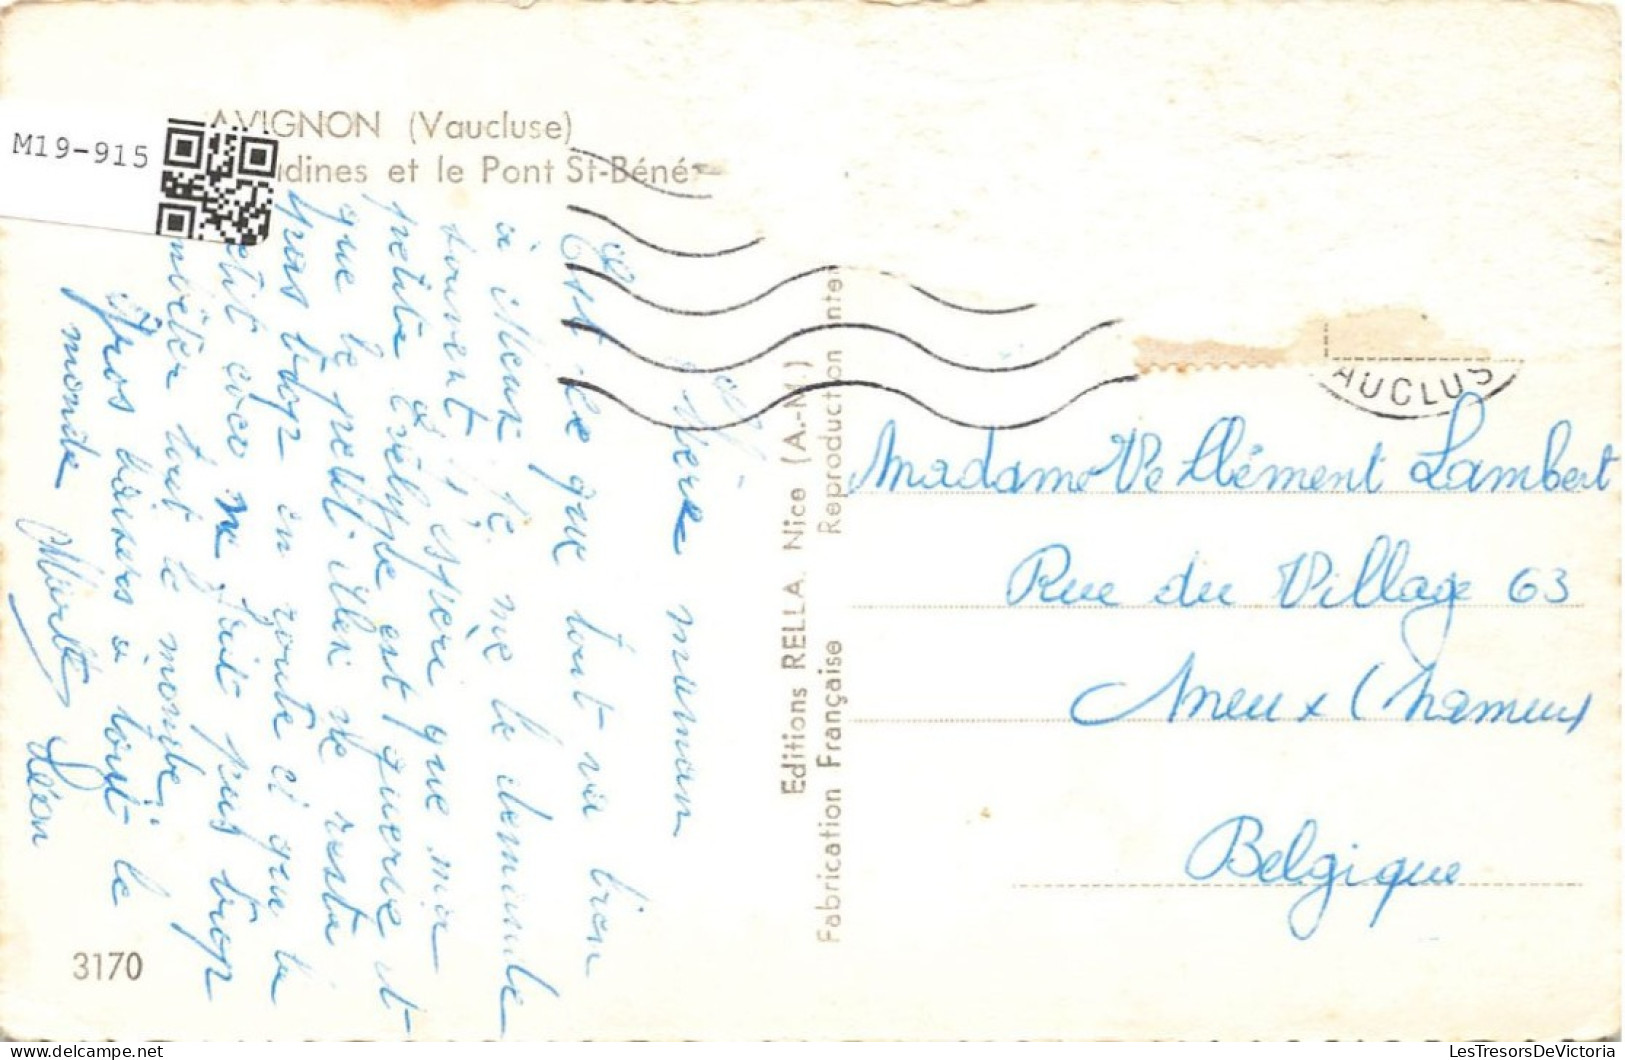 M19-915
AVIGNON (Vaucluse)
dines et le Pont St-Béné
Chère maman
Est-ce que tout va bien
à Meux je me le demande
souvent j'espère que ma
petite est guerie et
que le petit ne reste
pas trop en route et que le
petit coco ne fait pas trop
tout le monde,
Gros baisers à tout le
monde
Léon
3170
Editions RELLA. Nice (A.-M.)
Fabrication Française Reproduction inter
AUCLUS
Madame Ve Clément Lambert
Rue du Village 63
Meux (Namur)
Belgique
LesTresorsDeVictoria